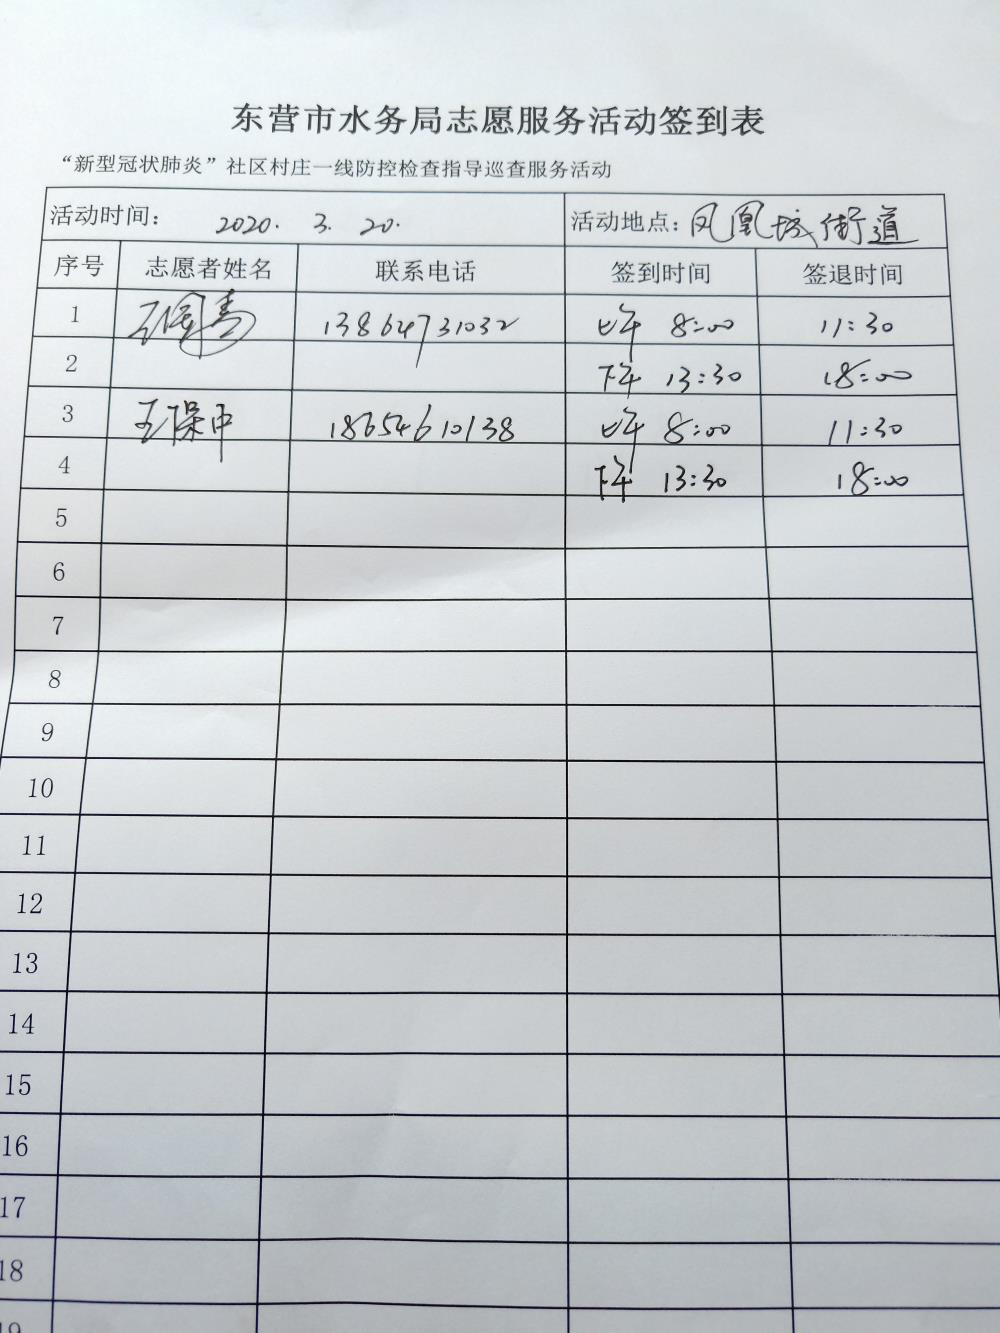 东营市水务局志愿服务活动签到表
“新型冠状肺炎”社区村庄一线防控检查指导巡查服务活动
活动时间： 2020. 3. 20. 活动地点：凤凰城街道
序号 志愿者姓名 联系电话 签到时间 签退时间
1 13864731032 上午 8:00 11:30
2 下午 13:30 18:00
3 王保中 18654610138 上午 8:00 11:30
4 下午 13:30 18:00
5
6
7
8
9
10
11
12
13
14
15
16
17
18
19